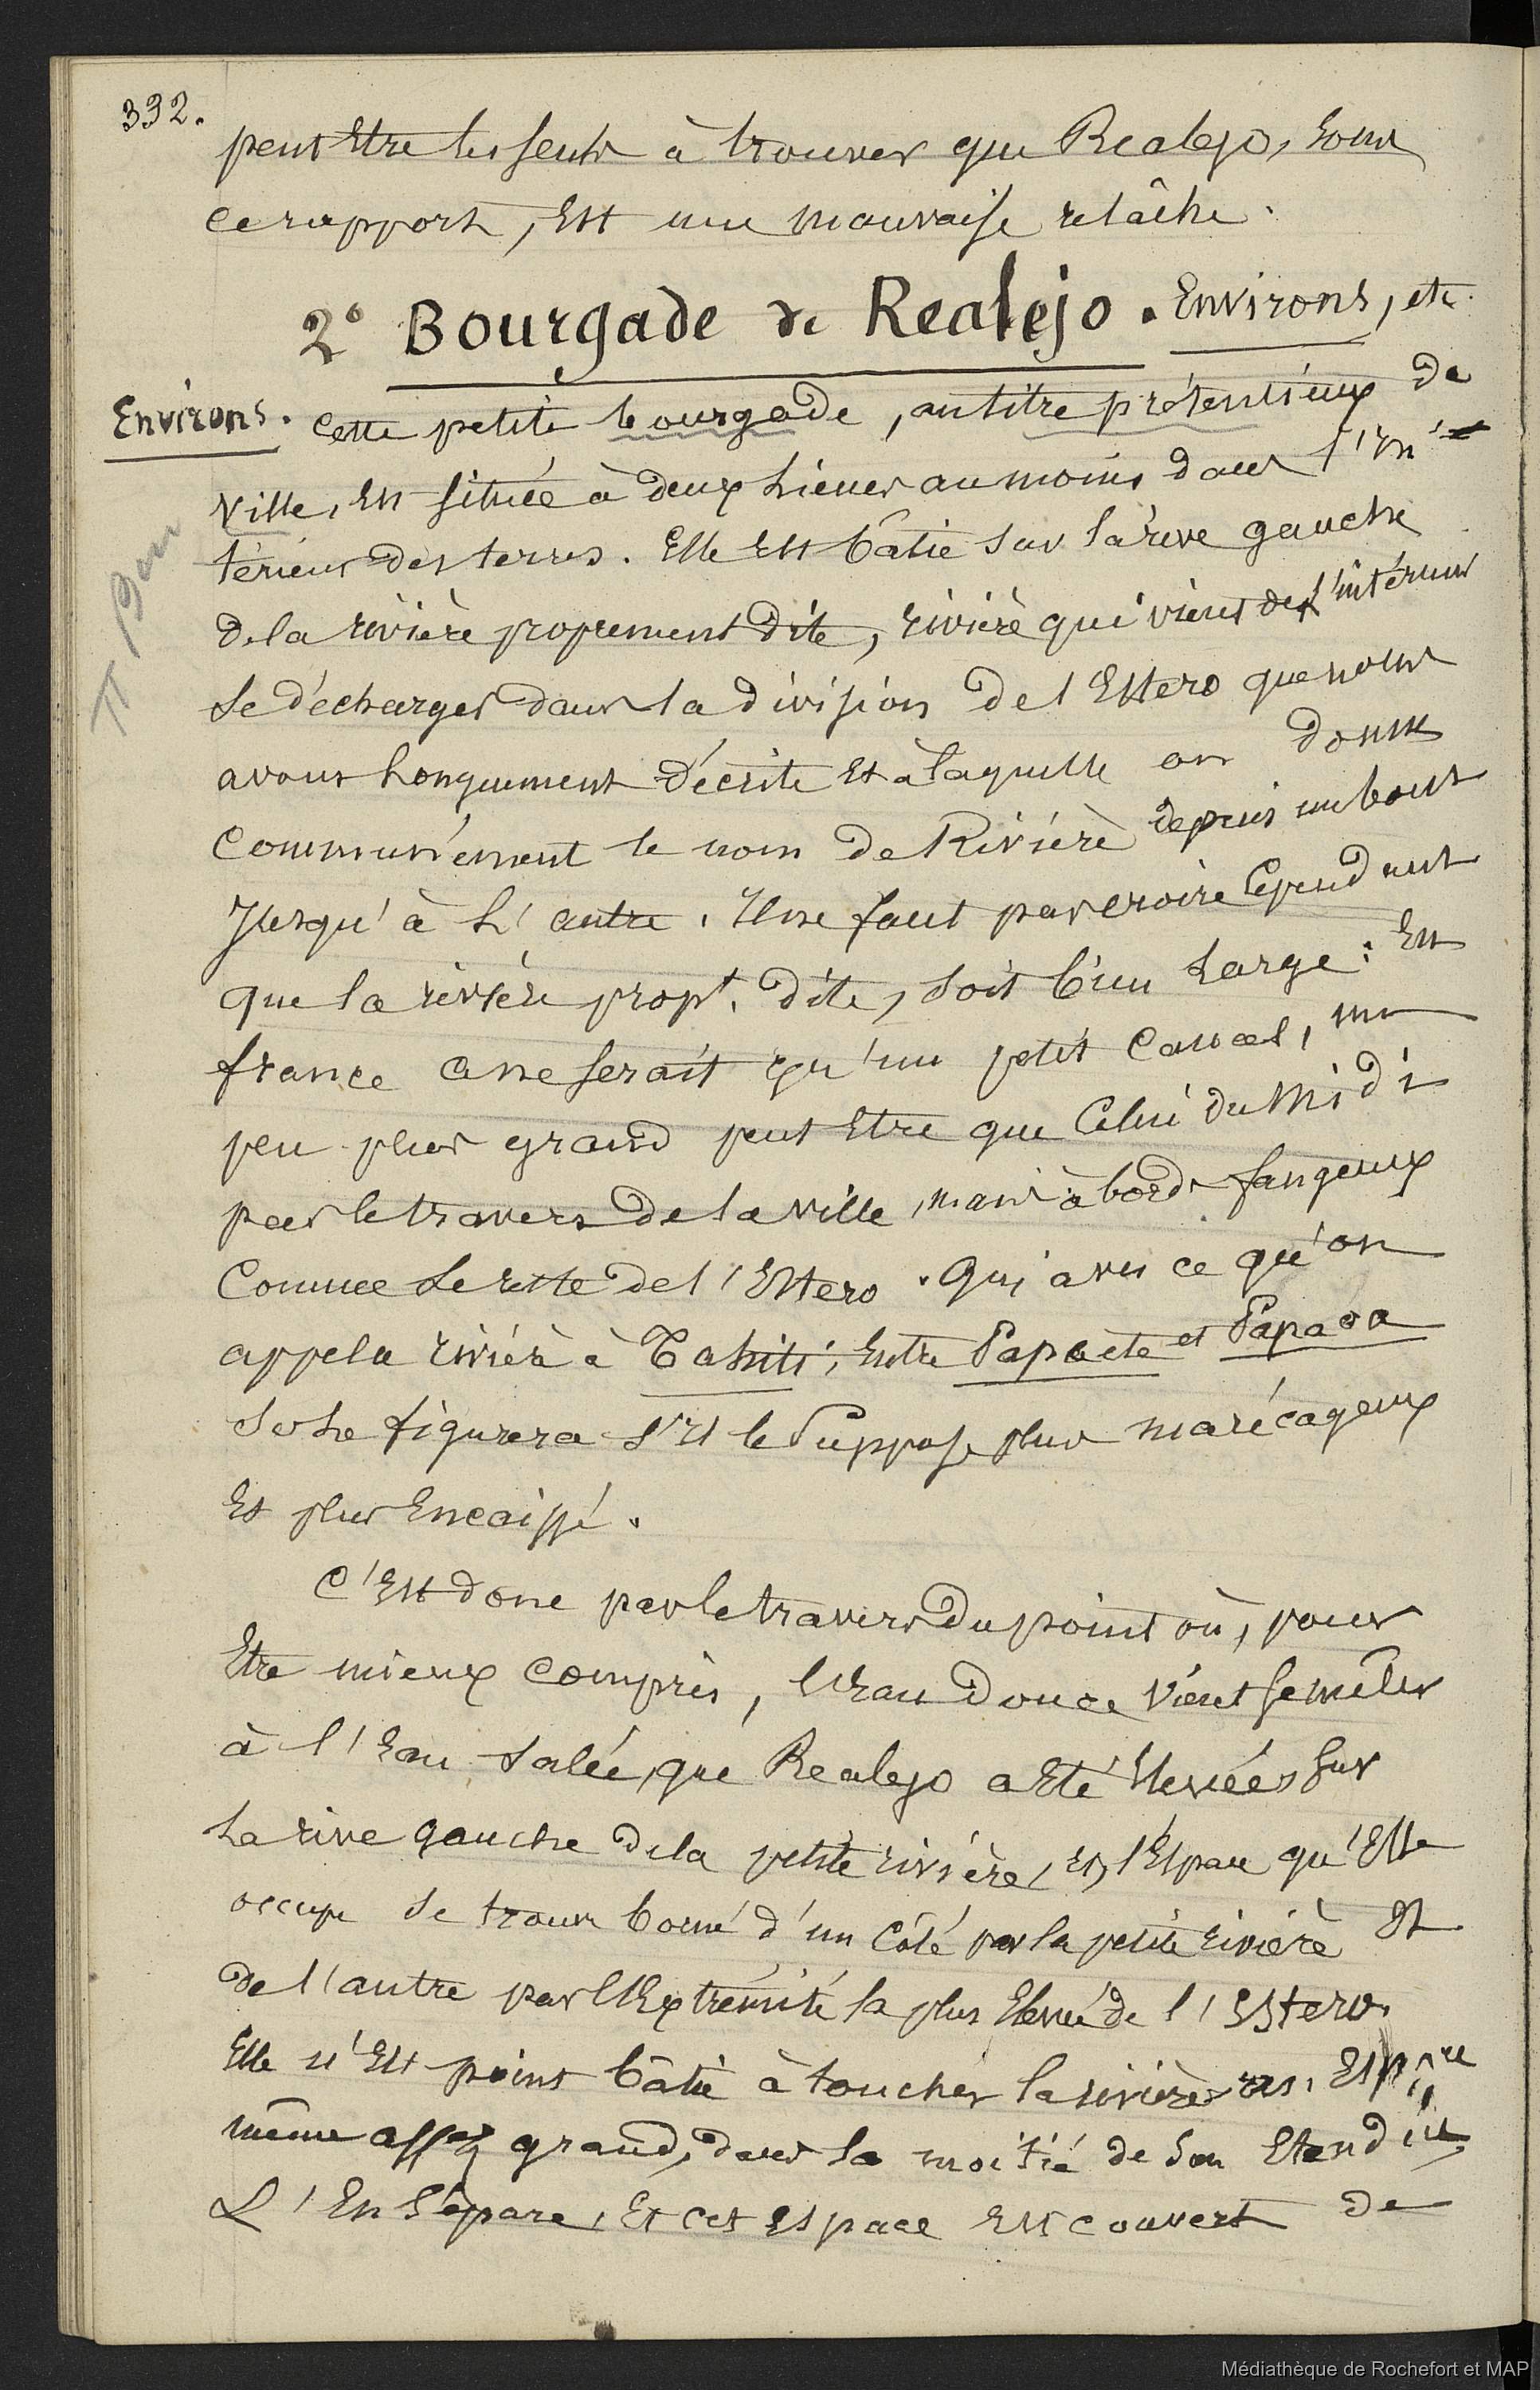 392.
peut Etre les seuls à trouver que Realejo, sous
ce rapport, Est une mauvaise relâche.
2° Bourgade de Realejo. Environs, etc.
Environs. Cette petite bourgade, au titre prétentieux de
Ville, Est située à deux Lieues au moins dans l'in-
térieur des terres. Elle Est bâtie sur la rive gauche
de la rivière proprement dite, rivière qui vient de l'intérieur
se décharger dans la division de l'Estero que nous
avons Longuement décrite Et à laquelle on donne
Communément le nom de Rivière depuis un bout
Jusqu'à L'autre. Il ne faut pas croire Cependant
que la rivière propt. dite, soit bien Large: En
france ce ne serait qu'un petit Canal, un
peu plus grand peut Etre que Celui du Midi
par le travers de la ville, mais à bords fangeux
Comme le reste de l'Estero. Qui a vu ce qu'on
appela rivière à Tahiti, Entre Papaete et Papaoa
se le figurera s'il le suppose plus marécageux
Et plus Encaissé.
C'Est donc par le travers du point où, pour
Etre mieux Compris, l'Eau douce vient se mêler
à l'Eau salée, que Realejo a Eté Elevée sur
La rive gauche de la petite rivière, Et l'Espace qu'Elle
occupe se trouve borné d'un Côté par la petite rivière Et
de l'autre par l'Extrémité la plus Elevée de l'Estero.
Elle n'Est point bâtie à toucher la rivière Espace
même assez grand, dans la moitié de son Etendue,
L'En sépare, Et cet Espace Est couvert de
Médiathèque de Rochefort et MAP